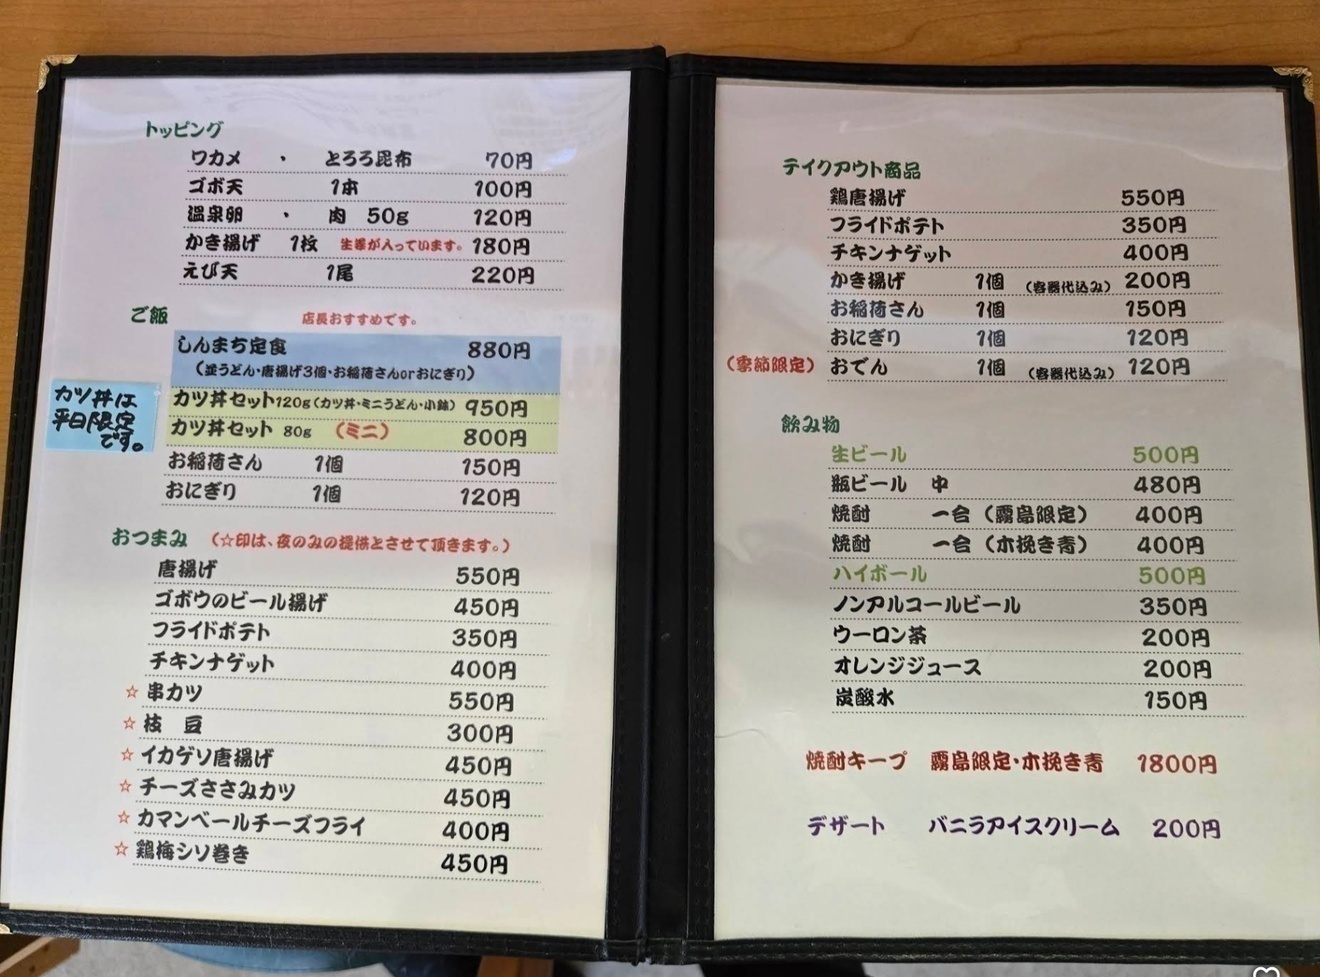 トッピング
ワカメ ・ とろろ昆布 70円
ゴボ天 1本 100円
温泉卵 ・ 肉 50g 120円
かき揚げ 1枚 生姜が入っています。 180円
えび天 1尾 220円
ご飯 店長おすすめです。
しんまち定食 880円
（並うどん・唐揚げ3個・お稲荷さんorおにぎり）
カツ丼は
平日限定
です。
カツ丼セット120g（カツ丼・ミニうどん・小鉢） 950円
カツ丼セット 80g （ミニ） 800円
お稲荷さん 1個 150円
おにぎり 1個 120円
おつまみ （☆印は、夜のみの提供とさせて頂きます。）
唐揚げ 550円
ゴボウのビール揚げ 450円
フライドポテト 350円
チキンナゲット 400円
☆ 串カツ 550円
☆ 枝 豆 300円
☆ イカゲソ唐揚げ 450円
☆ チーズささみカツ 450円
☆ カマンベールチーズフライ 400円
☆ 鶏梅シソ巻き 450円
テイクアウト商品
鶏唐揚げ 550円
フライドポテト 350円
チキンナゲット 400円
かき揚げ 1個 （容器代込み） 200円
お稲荷さん 1個 150円
おにぎり 1個 120円
（季節限定） おでん 1個 （容器代込み） 120円
飲み物
生ビール 500円
瓶ビール 中 480円
焼酎 一合（霧島限定） 400円
焼酎 一合（木挽き青） 400円
ハイボール 500円
ノンアルコールビール 350円
ウーロン茶 200円
オレンジジュース 200円
炭酸水 150円
焼酎キープ 霧島限定・木挽き青 1800円
デザート バニラアイスクリーム 200円